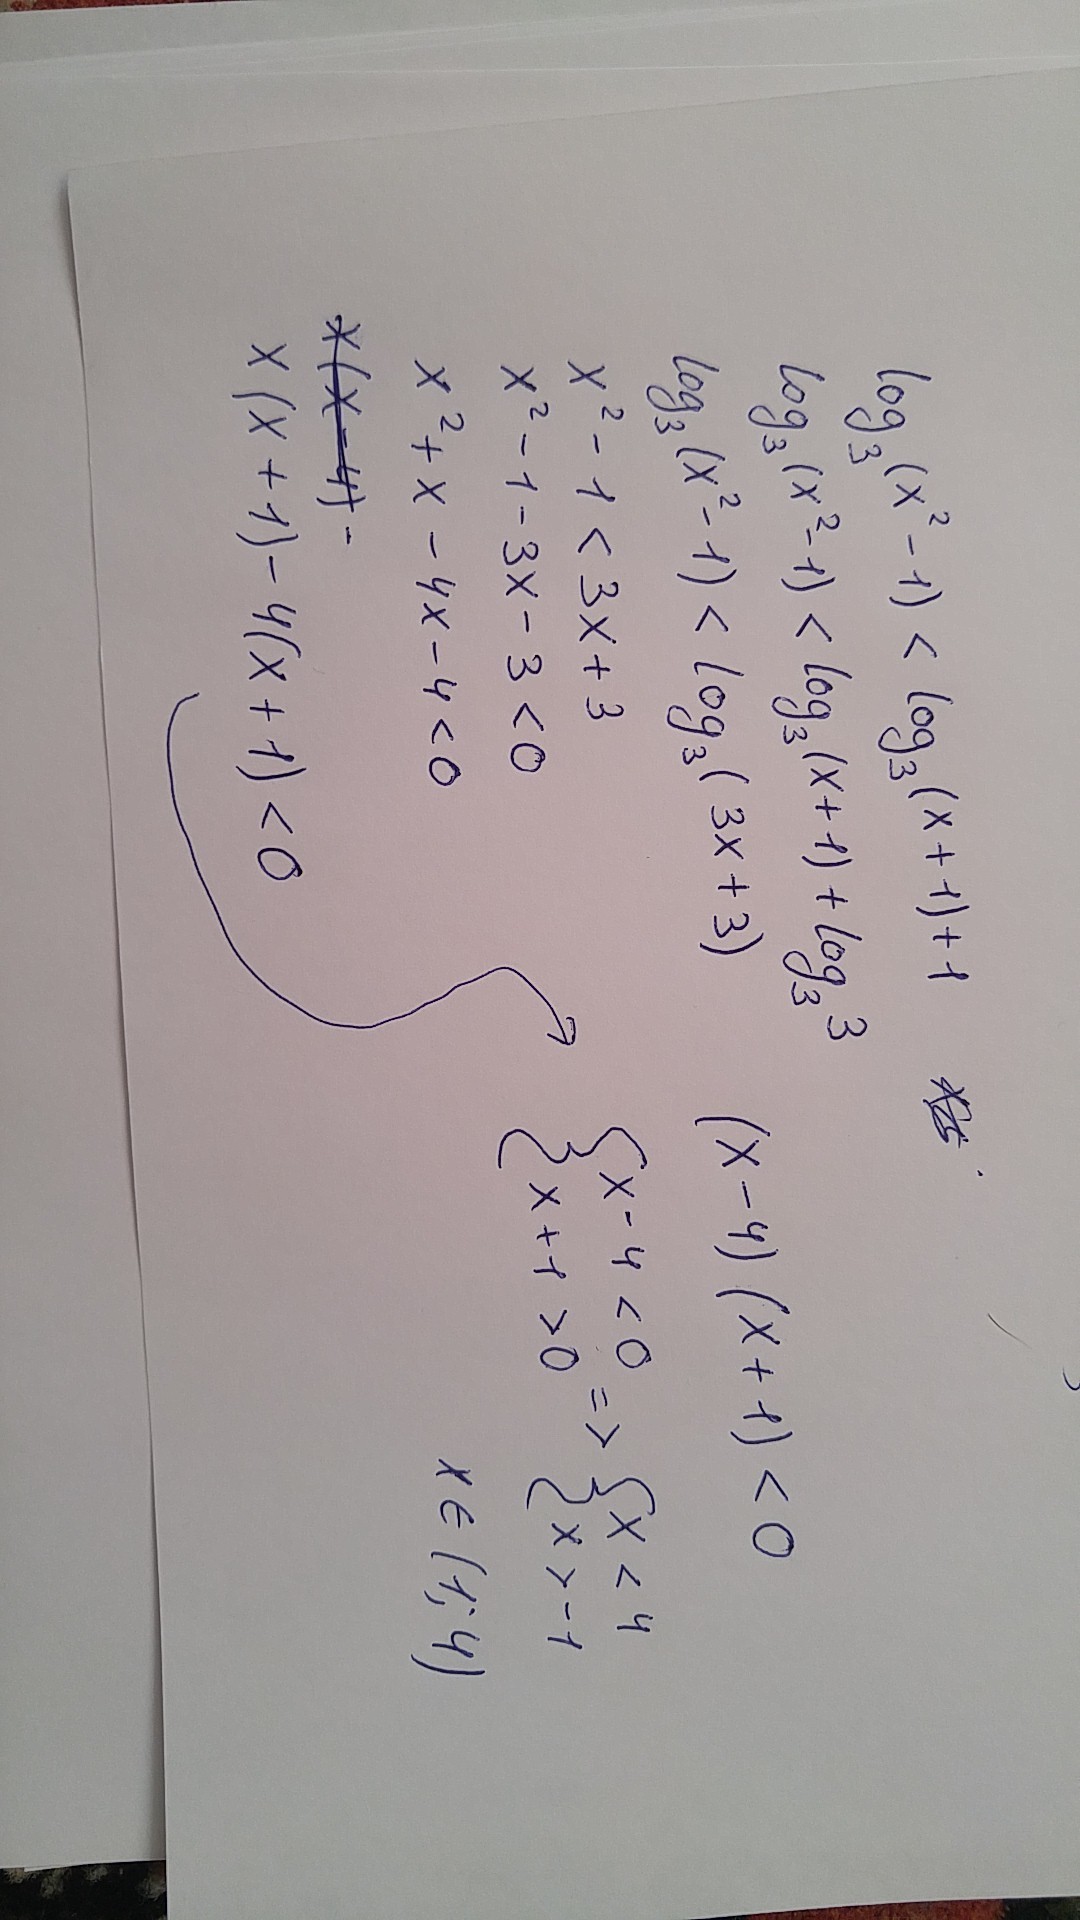 log₃(x² - 1) < log₃(x + 1) + 1
log₃(x² - 1) < log₃(x + 1) + log₃3
log₃(x² - 1) < log₃(3x + 3)
x² - 1 < 3x + 3
x² - 1 - 3x - 3 < 0
x² + x - 4x - 4 < 0
x(x - 4) -
x(x + 1) - 4(x + 1) < 0
(x - 4)(x + 1) < 0
{x - 4 < 0 => {x < 4
{x + 1 > 0 {x > -1
x ∈ (1; 4)